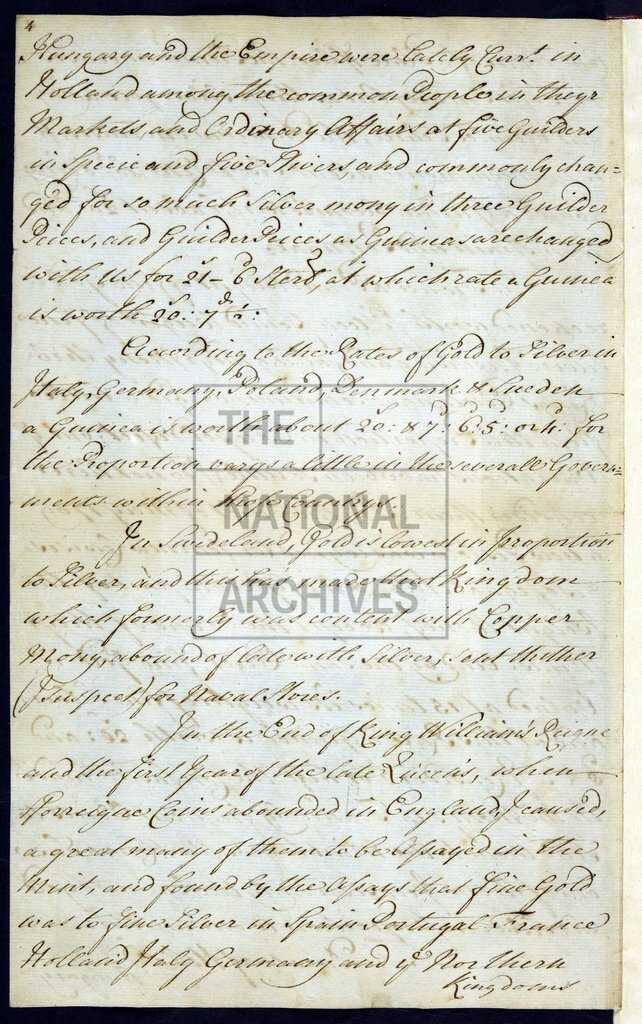 4
Hungary and the Empire were lately Curr.t in
Holland among the common People in theyr
Markets, and Ordinary Affairs at five Guilders
in Specie and five Stivers, and commonly chan=
ged for so much Silver mony in three Guilder
Peices, and Guilder Peices as Guineas are changed
with us for 21s – 6d Sterl, at which rate a Guinea
is worth 20s: 7d ½:
According to the Rates of Gold to Silver in
Italy, Germany, Poland, Denmark & Sweden
a Guinea is worth about 20s: & 7d: 6d 5d: or 4d: for
the Proportion varys a little in the severall Govern=
ments within those Countrys.
In Swedeland, Gold is lowest in proportion
to Silver, and this has made that Kingdom
which formerly was content with Copper
Mony, abound of late with Silver, sent thither
(I suspect) for Naval Stores.
In the End of King William's Reigne
and the first Year of the late Queen's, when
Forreigne Coins abounded in England, I caused,
a great many of them to be Assayed in the
Mint, and found by the Assays that fine Gold
was to fine Silver in Spain Portugal France
Holland Italy Germany and ye Northern
Kingdoms
THE
NATIONAL
ARCHIVES